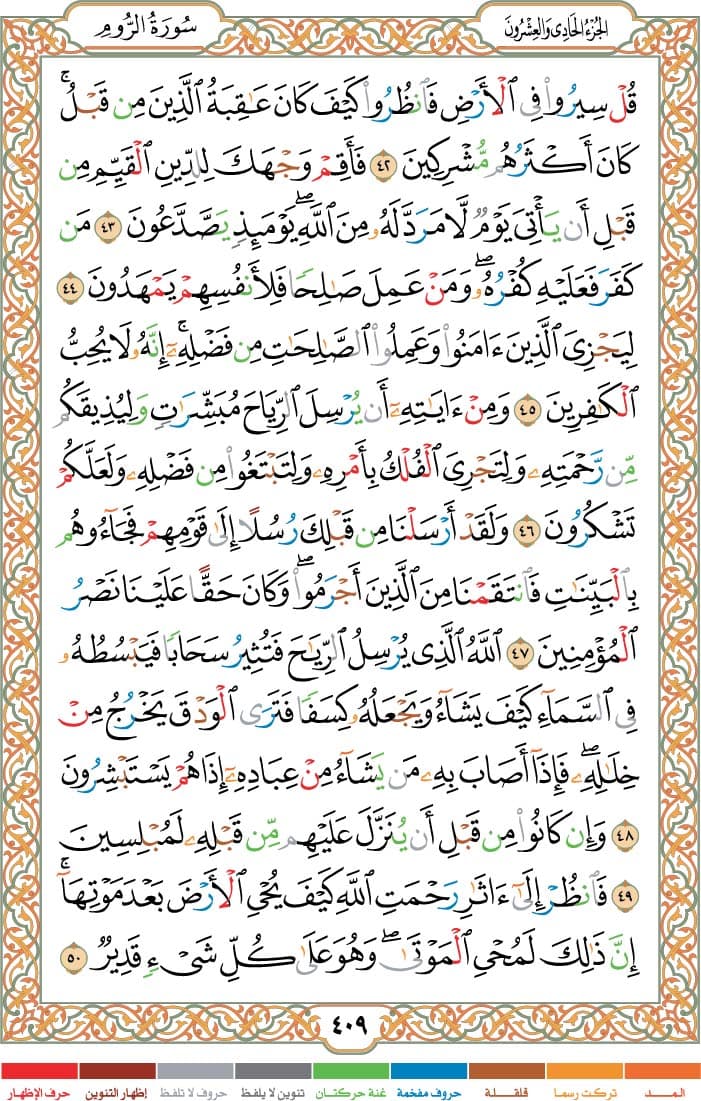 الجزء الحادي والعشرون
سورة الروم
قُلْ سِيرُوا۟ فِى ٱلْأَرْضِ فَٱنظُرُوا۟ كَيْفَ كَانَ عَـٰقِبَةُ ٱلَّذِينَ مِن قَبْلُ ۚ
كَانَ أَكْثَرُهُم مُّشْرِكِينَ ٤٢ فَأَقِمْ وَجْهَكَ لِلدِّينِ ٱلْقَيِّمِ مِن
قَبْلِ أَن يَأْتِىَ يَوْمٌ لَّا مَرَدَّ لَهُۥ مِنَ ٱللَّهِ ۖ يَوْمَئِذٍ يَصَّدَّعُونَ ٤٣ مَن
كَفَرَ فَعَلَيْهِ كُفْرُهُۥ ۖ وَمَنْ عَمِلَ صَـٰلِحًا فَلِأَنفُسِهِمْ يَمْهَدُونَ ٤٤
لِيَجْزِىَ ٱلَّذِينَ ءَامَنُوا۟ وَعَمِلُوا۟ ٱلصَّـٰلِحَـٰتِ مِن فَضْلِهِۦٓ ۚ إِنَّهُۥ لَا يُحِبُّ
ٱلْكَـٰفِرِينَ ٤٥ وَمِنْ ءَايَـٰتِهِۦٓ أَن يُرْسِلَ ٱلرِّيَاحَ مُبَشِّرَٰتٍ وَلِيُذِيقَكُم
مِّن رَّحْمَتِهِۦ وَلِتَجْرِىَ ٱلْفُلْكُ بِأَمْرِهِۦ وَلِتَبْتَغُوا۟ مِن فَضْلِهِۦ وَلَعَلَّكُمْ
تَشْكُرُونَ ٤٦ وَلَقَدْ أَرْسَلْنَا مِن قَبْلِكَ رُسُلًا إِلَىٰ قَوْمِهِمْ فَجَآءُوهُم
بِٱلْبَيِّنَـٰتِ فَٱنتَقَمْنَا مِنَ ٱلَّذِينَ أَجْرَمُوا۟ ۖ وَكَانَ حَقًّا عَلَيْنَا نَصْرُ
ٱلْمُؤْمِنِينَ ٤٧ ٱللَّهُ ٱلَّذِى يُرْسِلُ ٱلرِّيَـٰحَ فَتُثِيرُ سَحَابًا فَيَبْسُطُهُۥ
فِى ٱلسَّمَآءِ كَيْفَ يَشَآءُ وَيَجْعَلُهُۥ كِسَفًا فَتَرَى ٱلْوَدْقَ يَخْرُجُ مِنْ
خِلَـٰلِهِۦ ۖ فَإِذَآ أَصَابَ بِهِۦ مَن يَشَآءُ مِنْ عِبَادِهِۦٓ إِذَا هُمْ يَسْتَبْشِرُونَ
٤٨ وَإِن كَانُوا۟ مِن قَبْلِ أَن يُنَزَّلَ عَلَيْهِم مِّن قَبْلِهِۦ لَمُبْلِسِينَ
٤٩ فَٱنظُرْ إِلَىٰٓ ءَاثَـٰرِ رَحْمَتِ ٱللَّهِ كَيْفَ يُحْىِ ٱلْأَرْضَ بَعْدَ مَوْتِهَآ ۚ
إِنَّ ذَٰلِكَ لَمُحْىِ ٱلْمَوْتَىٰ ۖ وَهُوَ عَلَىٰ كُلِّ شَىْءٍ قَدِيرٌ ٥٠
٤٠٩
المـــد تركت رسما قلقـــلة حروف مفخمة غنة حركتـان تنوين لا يلفظ حروف لا تلفظ إظهار التنوين حرف الإظهار